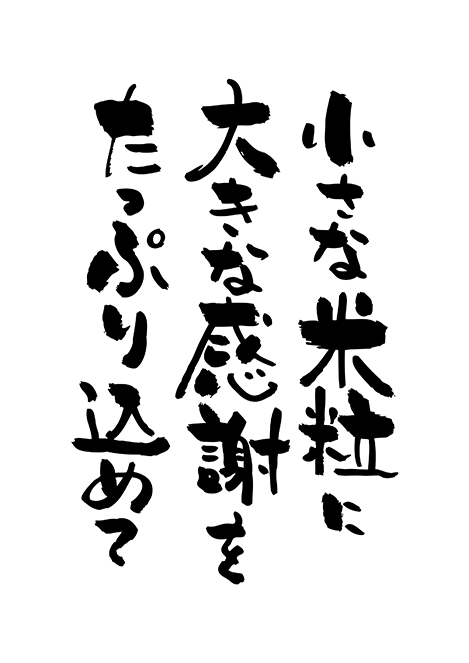 小さな米粒に
大きな感謝を
たっぷり込めて